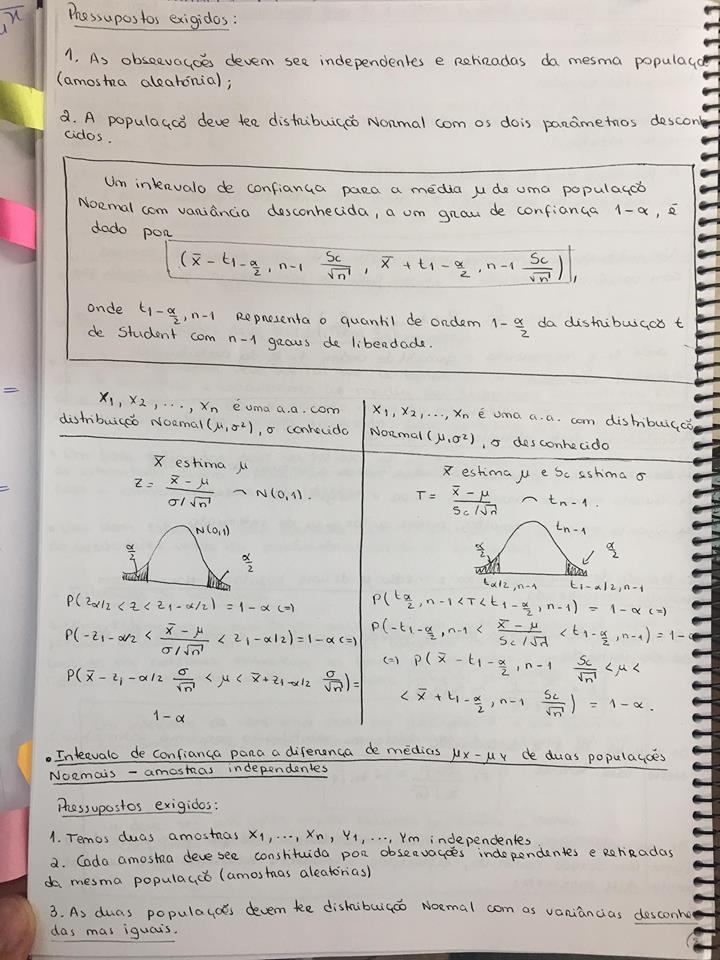 Pressupostos exigidos:
1. As observações devem ser independentes e retiradas da mesma populaçã
(amostra aleatória);
2. A população deve ter distribuição Normal com os dois parâmetros descon
cidos.
Um intervalo de confiança para a média μ de uma população
Normal com variância desconhecida, a um grau de confiança 1-α, é
dado por
(x̄ - t1-α/2, n-1 Sc/√n , x̄ + t1-α/2, n-1 Sc/√n),
onde t1-α/2, n-1 representa o quantil de ordem 1-α/2 da distribuição t
de Student com n-1 graus de liberdade.
X1, X2, ..., Xn é uma a.a. com
distribuição Normal(μ,σ²), σ conhecido
x̄ estima μ
Z = x̄ - μ / σ/√n ~ N(0,1).
N(0,1)
α/2
α/2
P(zα/2 < Z < z1-α/2) = 1-α (=)
P(-z1-α/2 < x̄ - μ / σ/√n < z1-α/2) = 1-α (=)
P(x̄ - z1-α/2 σ/√n < μ < x̄ + z1-α/2 σ/√n) =
1-α
X1, X2, ..., Xn é uma a.a. com distribuiçã
Normal(μ,σ²), σ desconhecido
x̄ estima μ e Sc estima σ
T = x̄ - μ / Sc/√n ~ tn-1.
tn-1
α/2
α/2
tα/2, n-1 t1-α/2, n-1
P(tα/2, n-1 < T < t1-α/2, n-1) = 1-α (=)
P(-t1-α/2, n-1 < x̄ - μ / Sc/√n < t1-α/2, n-1) = 1-
(=) P(x̄ - t1-α/2, n-1 Sc/√n < μ <
< x̄ + t1-α/2, n-1 Sc/√n) = 1-α.
• Intervalo de confiança para a diferença de médias μx - μy de duas populações
Normais - amostras independentes
Pressupostos exigidos:
1. Temos duas amostras X1, ..., Xn, Y1, ..., Ym independentes
2. Cada amostra deve ser constituida por observações independentes e retiradas
da mesma população (amostras aleatórias)
3. As duas populações devem ter distribuição Normal com as variâncias desconhe
das mas iguais.